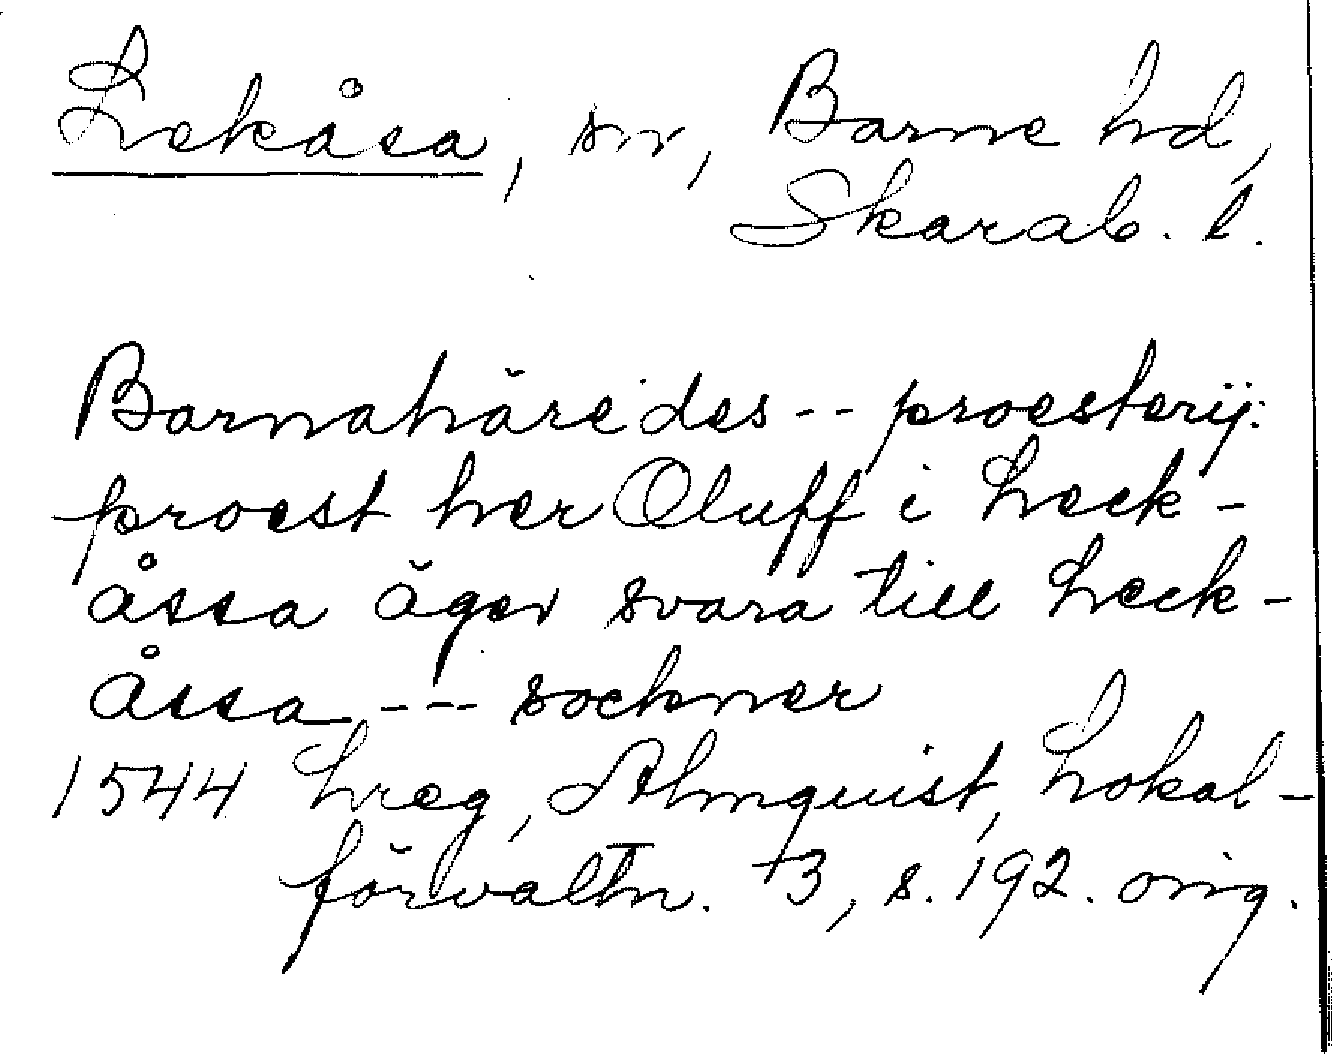 Lekåsa, sn, Barne hd,
Skarab. l.
Barnahäredes -- proesterij:
proest her Oluff i Leck-
åssa äger svara till Leck-
åssa --- sockner
1544 Lreg, Almquist, Lokal-
förvaltn. 3, s. 192. orig.